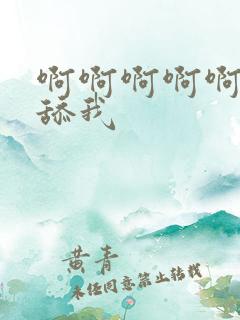 啊啊啊啊啊
舔我
黄青
未经同意禁止转载